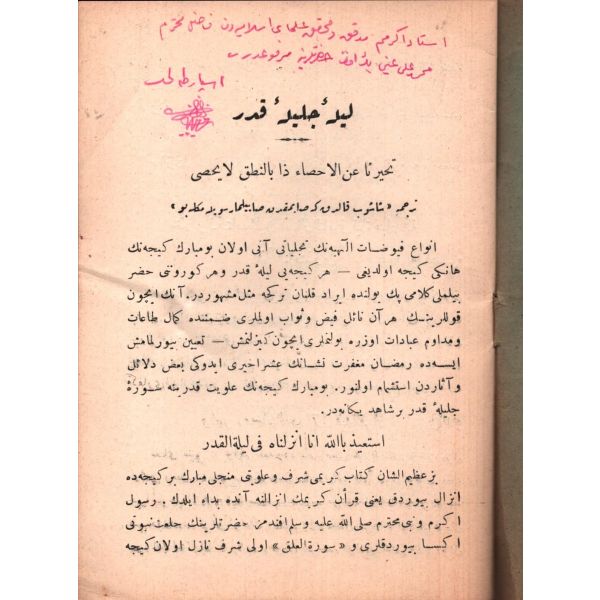 استاذ اكرمم مدقق و محقق علمای اسلامیه‌دن فاضل محترم
محمد علی عینی بك افندی حضرتلرینه مرفوعدر
اسپارطه لی
لیلهٔ جلیلهٔ قدر
تحیرنا عن الاحصاء ذا بالنطق لا یحصی
ترجمه «شاشوب قالدق كه صایمقدن صاییلماز سویله مكله بو»
انواع فیوضات الٓهیه‌نك تجلیاتی آنی اولان بو مبارك كیجه‌نك
هانكی كیجه اولدیغی — هر كیجه‌یی لیلهٔ قدر و هر كوروننی حضر
بیلملی كلامی پك یولنده ایراد قلنان تركجه مثل مشهوردر. آنك ایچون
قوللرینك هر آن نائل فیض و ثواب اولملری ضمننده كمال طاعات
و مداوم عبادات اوزره بولنملری ایچون كیزلنمش — تعیین بیورلمامش
ایسه‌ده رمضان مغفرت نشانك عشر اخیری ایدوكی بعض دلائل
و آثاردن استشمام اولنور. بو مبارك كیجه‌نك علویت قدرینه سورهٔ
جلیلهٔ قدر بر شاهد یكانه‌در.
استعیذ بالله انا انزلناه فی لیلة القدر
بز عظیم الشان كتاب كریمی شرف و علوتی منجلی مبارك بر كیجه‌ده
انزال بیوردق یعنی قرأن كریمك انزالنه آنده بداء ایلدك. رسول
اكرم و نبی محترم صلی الله علیه و سلم افندمز حضرتلرینك خلعت نبوتی
اكسا بیوردقلری و «سورة العلق» اولی شرف نازل اولان كیجه